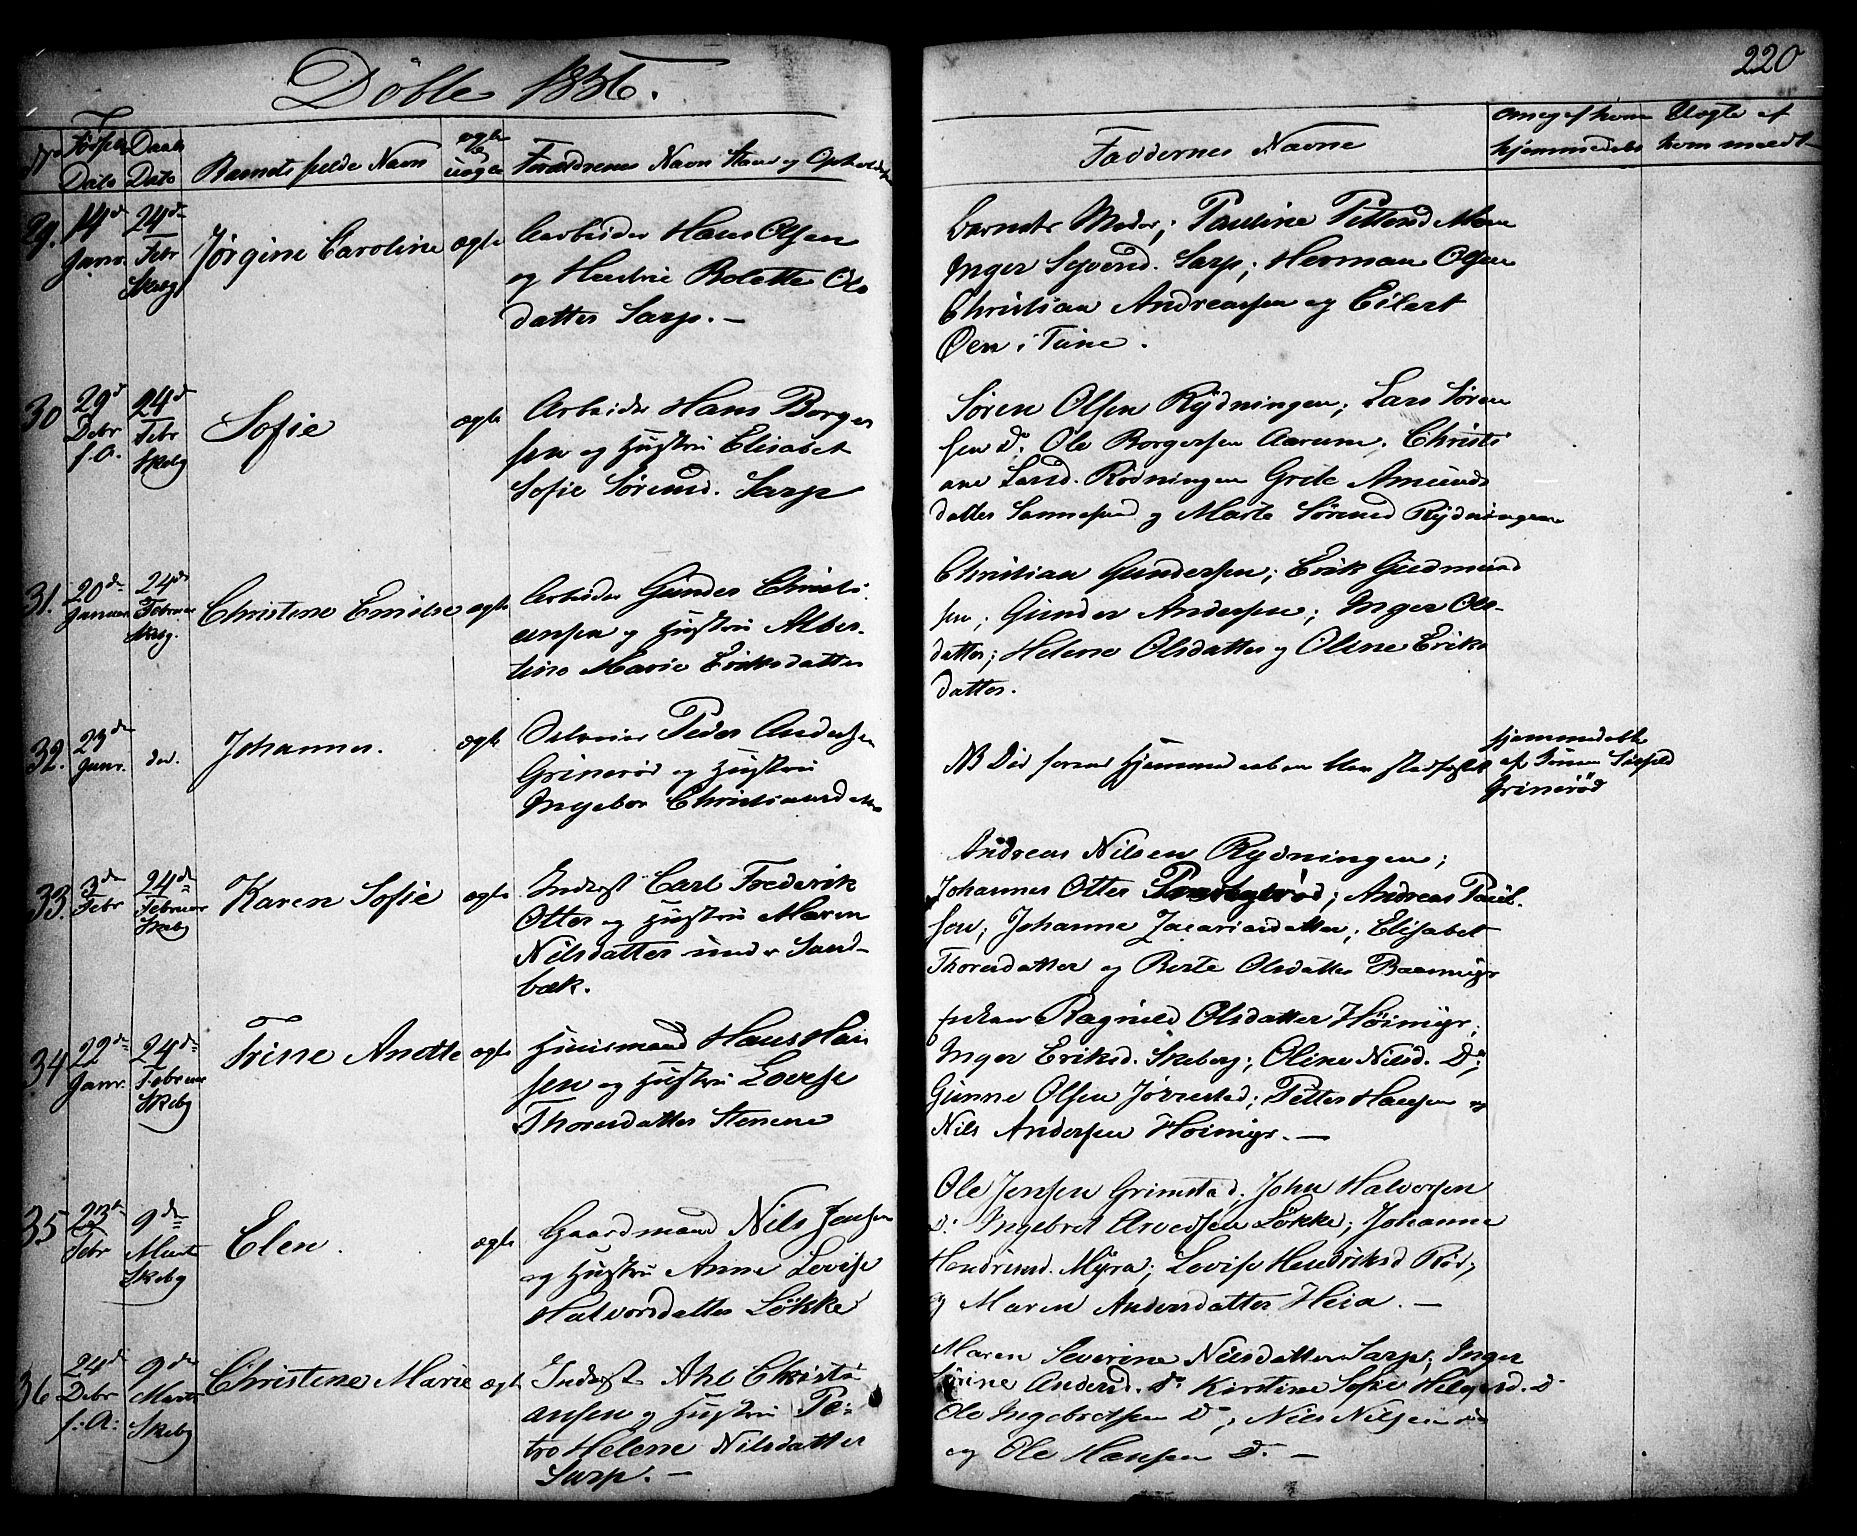 Döbte 1836.
220
No Fødsels Dato Daabs Dato Barnets fulde Navn ægte uægte Forældrenes Navn Stand og Opholdst
Faddernes Navne hjemmedøbt
29. 14d Janr. 24d Febr Skebg Jørgine Caroline ægte Arbeider Hans Olsen
og Hustrue Bolette Ols
datter Sarp. —
Barnets Moder; Pauline
Inger Syversd. Sarp; Herman Olsen
Christian Andreassen og Eilert
Oen i Tune.
30 29d Debr f. A. 24d Febr Skebg Sofie ægte Arbeider Hans Borger
sen og Hustru Elisabet
Sofie Sørensd. Sarp
Søren Olsen Rydningen; Lars Sören
sen Do Ole Borgersen Aarum; Christi
ane Larsd. Rödningen Grete Amunds
datter Sannesund og Marte Sörensd Rydningen
31. 20de Januar 24de Februar Skebg. Christine Emilie ægte Arbeider Gunder Christi
ansen og Hustru Alber-
tine Marie Eriksdatter
Christian Gundersen; Erik Gudmund
sen; Gunder Andersen; Inger Ols-
datter; Helene Olsdatter og Oline Eriks
datter.
32. 23de Janr. do. Johannes. ægte Peder Andersen
Grinerød og Hustru
Ingebor Christiansdatter
NB Did foran Hjemmedaaben blev stadfæstet
hjemmedøbt
af
Grinerød
33. 3de Febr 24de Februar Skebg Karen Sofie ægte Inderst Carl Frederik
Otter og Hustru Maren
Nilsdatter under Sand-
bæk.
Andreas Nilsen Rydningen;
Johannes Otter; Andreas Paul-
sen; Johanne Zacariasdatter; Elisabet
Thoresdatter og Berte Olsdatter
34 22de Janr. 24de Februar Skebg Trine Anette ægte Huusmand Hans Han
sen og Hustru Lovise
Thoresdatter Stenene
Ragnild Olsdatter Höimyr;
Inger Eriksd. Skeberg; Oline Nilsd. Do;
Gunne Olsen Jörrestad; Petter Hansen og
Nils Andersen Höimyr. —
35 23de Febr 9de Marts Skebg Elen. ægte Gaardmand Nils Jensen
og Hustru Anne Lovise
Halvorsdatter Løkke
Ole Jensen Grimstad; John Halvorsen
Do Ingebret Arvedsen Løkke; Johanne
Hendriksd. Myra; Lovise Hendriksd Röd;
og Maren Andersdatter Heia. —
36 24d Debr f: A: 9de Marts Skebg Christine Marie ægte Inderst Christi
ansen og Hustru Pe-
tro Helene Nilsdatter
Sarp. —
Maren Severine Nilsdatter Sarp; Inger
Andersd. Do Kirstine Sofie Do
Ole Ingebretsen Do; Nils Nilsen
og Ole Hansen Do. —